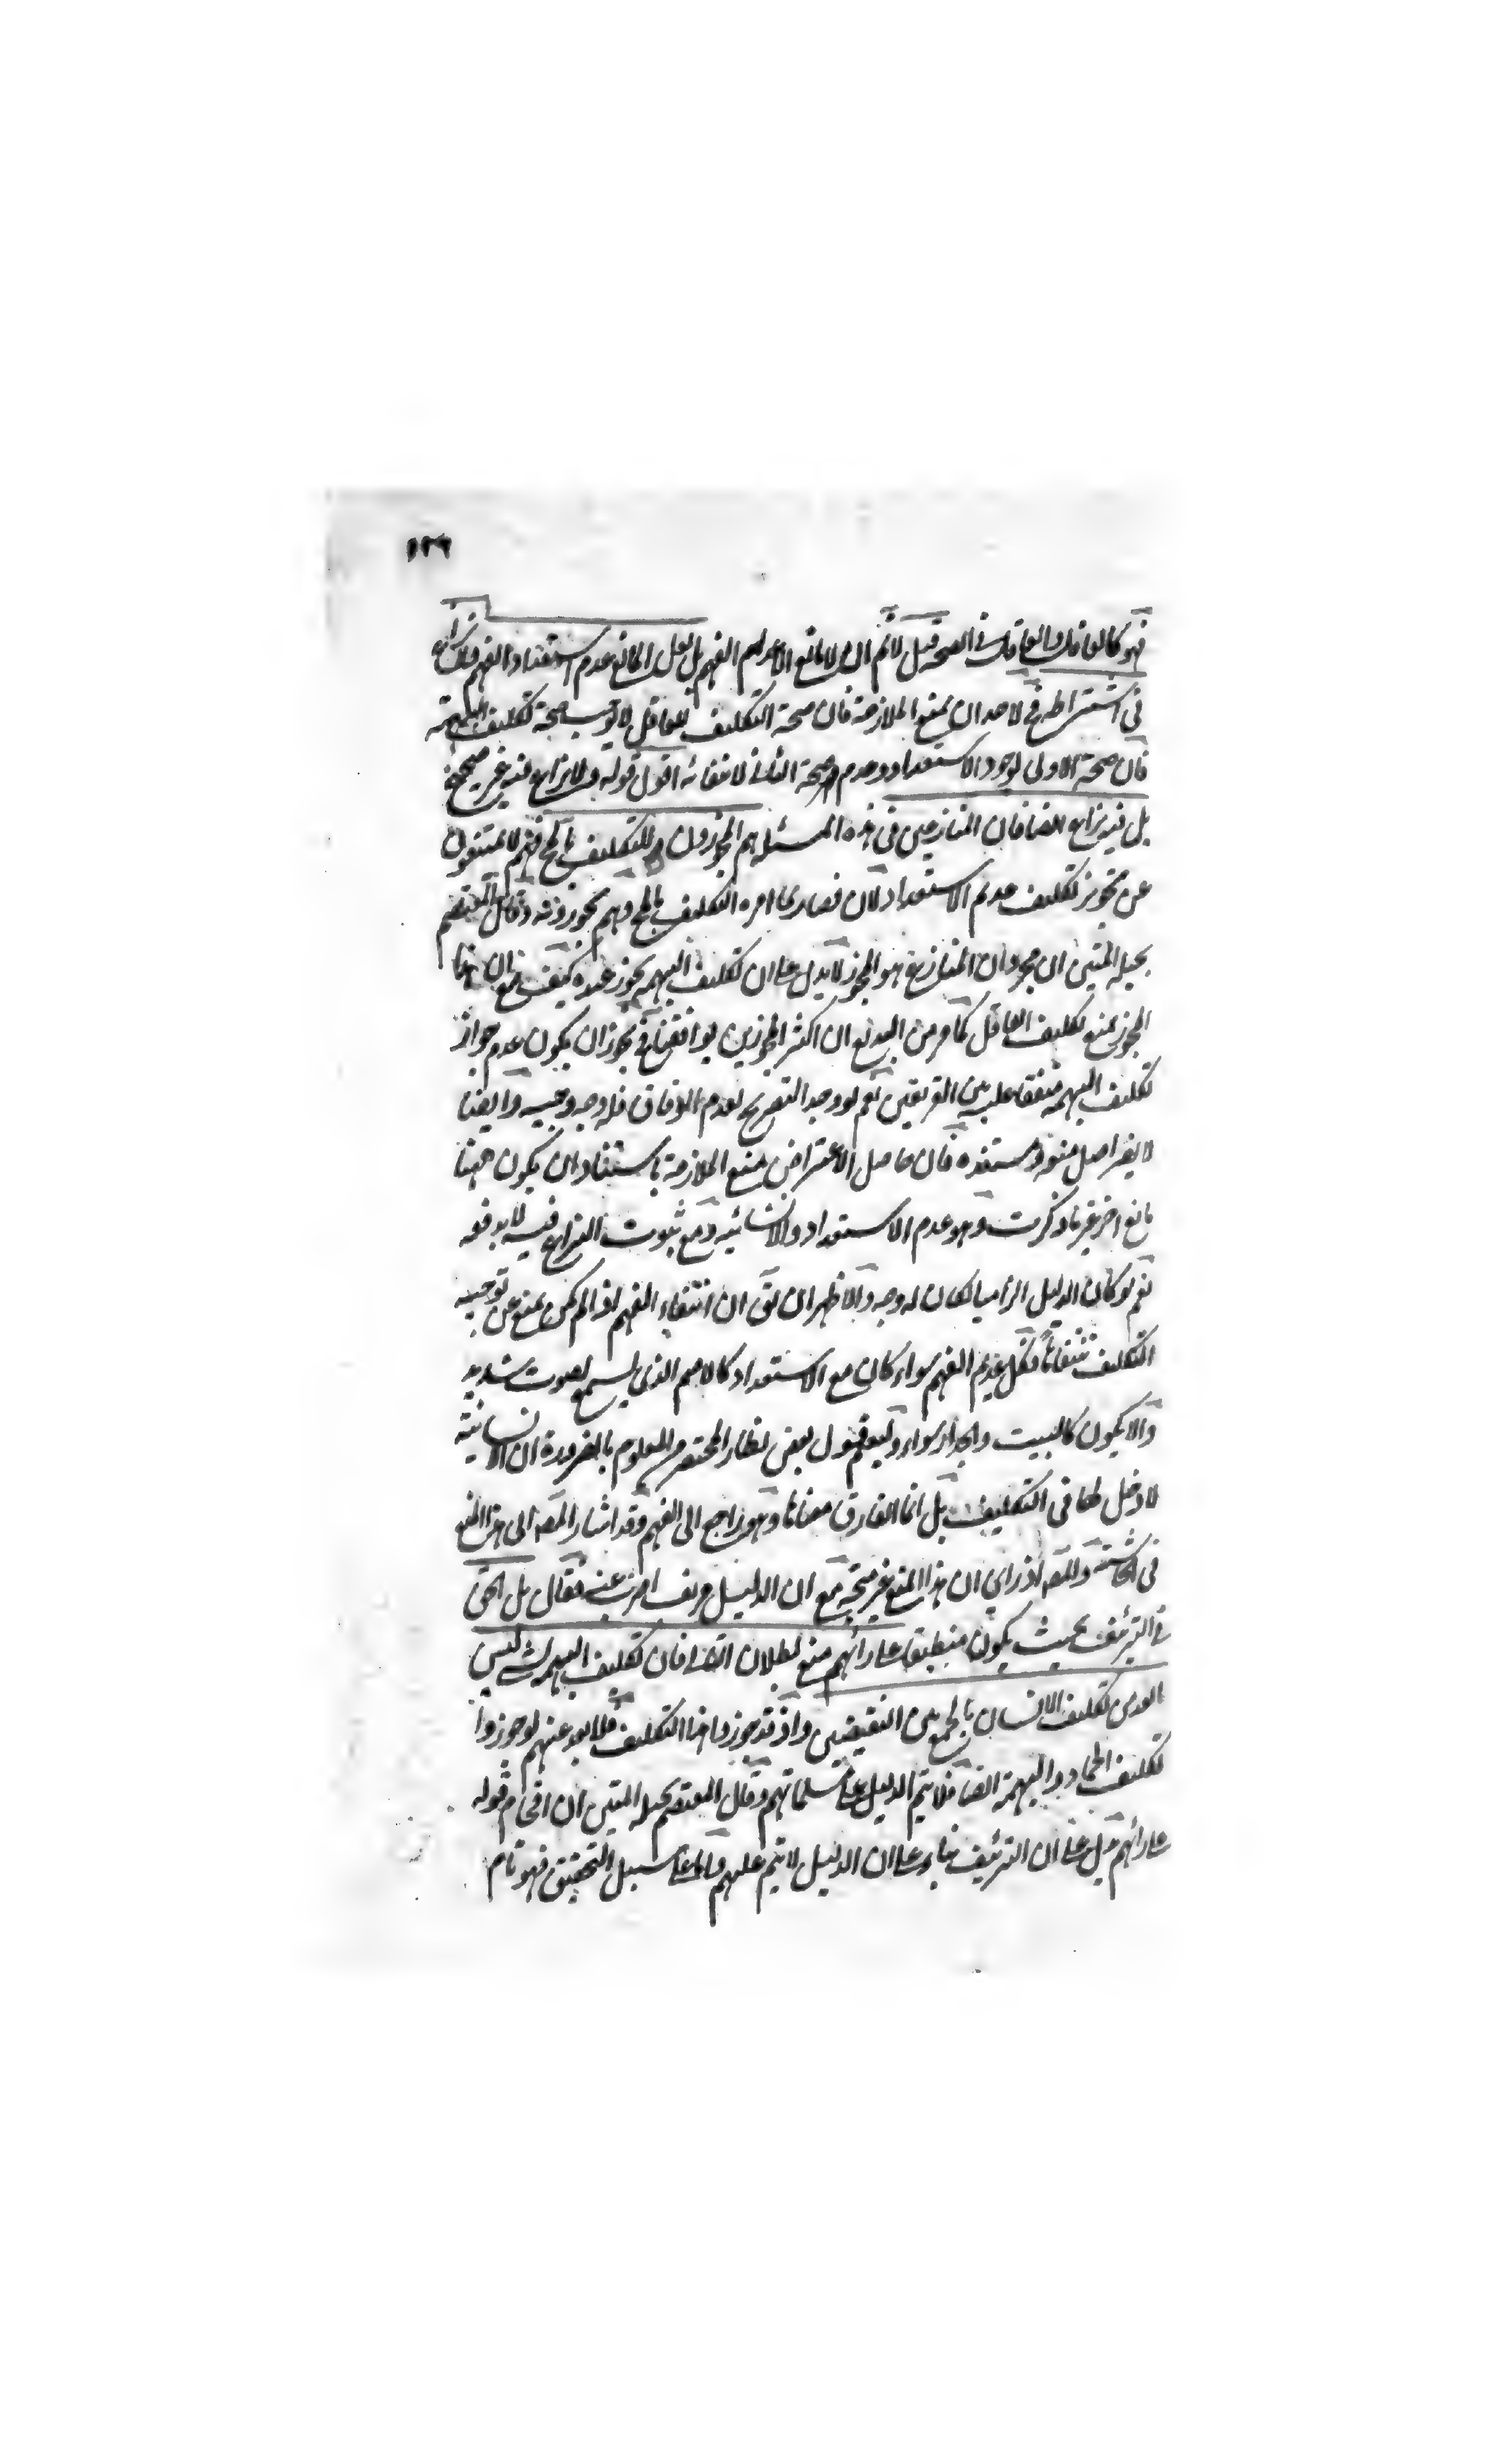 ١٢٩
فهو كالغافل والعاقل في الصحة قيل لا نم ان لا مانع الا عدم الفهم بل لعل المانع عدم استعداد الفهم فلا نزاع
في اشتراطه فح لاحد ان يمنع الملازمة فان صحة التكليف للغافل لا توجب صحة تكليف البهيمة
فان صحة الاولى لوجود الاستعداد وعدم صحة الثاني لانتفائه اقول قوله ولا نزاع فيه غير صحيح
بل فيه نزاع ايضا فان المنازعين في هذه المسئلة هم المجوزون للتكليف بالمح فهم لا يمتنعون
عن تجويز تكليف عديم الاستعداد لان قصارى امره التكليف بالمح وهم يجوزونه وقال المعتصم
بحبله المتين ان مجرد ان المنازع هو المجوز لا يدل على ان تكليف البهيمة يجوز عنده كيف مع ان هذا
المجوز يمنع تكليف الغافل كما مر من البديع ان اكثر المجوزين يوافقنا فح يجوز ان يكون عدم جواز
تكليف البهيمة متفقا عليه بين الفريقين نعم لو وجد التصريح بعدم الوفاق فله وجه وجيه وايضا
لا يضر اصل منعه ومستنده فان حاصل الاعتراض منع الملازمة باستناد ان يكون ههنا
مانع اخر غير ما ذكرت وهو عدم الاستعداد والانسانية ومع ثبوت النزاع فيه لا يدفعه
نعم لو كان الدليل الزاميا لكان له وجه والاظهر ان يق ان انتفاء الفهم اذا لم يكن يمنع عن توجيه
التكليف شفاها فكل عديم الفهم سواء كان مع الاستعداد كالاصم الذي يسمع بصوت شديد
والا يكون كالبيت والجدار سواء وليعلم قول بعض نظار المختصر من المعلوم بالضرورة ان الانسانية
لا دخل لها في التكليف بل انما الفارق معناها وهو راجع الى الفهم وقد اشار المص الى هذا المنع
في الحاشية والمص اذ راى ان هذا المنع غير متجه مع ان الدليل مزيف اعرض عنه فقال بل الحق
في التزئيف بحيث يكون منطبقا على رائهم منع بطلان التالي فان تكليف البهيمة ليس
ابعد من تكليف الانسان بالجمع بين النقيضين واذ قد جوزوا هذا التكليف فلا بعد عنهم لو جوزوا
تكليف الجماد والبهيمة ايضا فلا يتم الدليل على مسلماتهم وقال المعتصم بحبله المتين ان اقحام قوله
على رائهم يدل على ان التزئيف بناء على ان الدليل لا يتم عليهم واما على سبيل التحقيق فهو تام